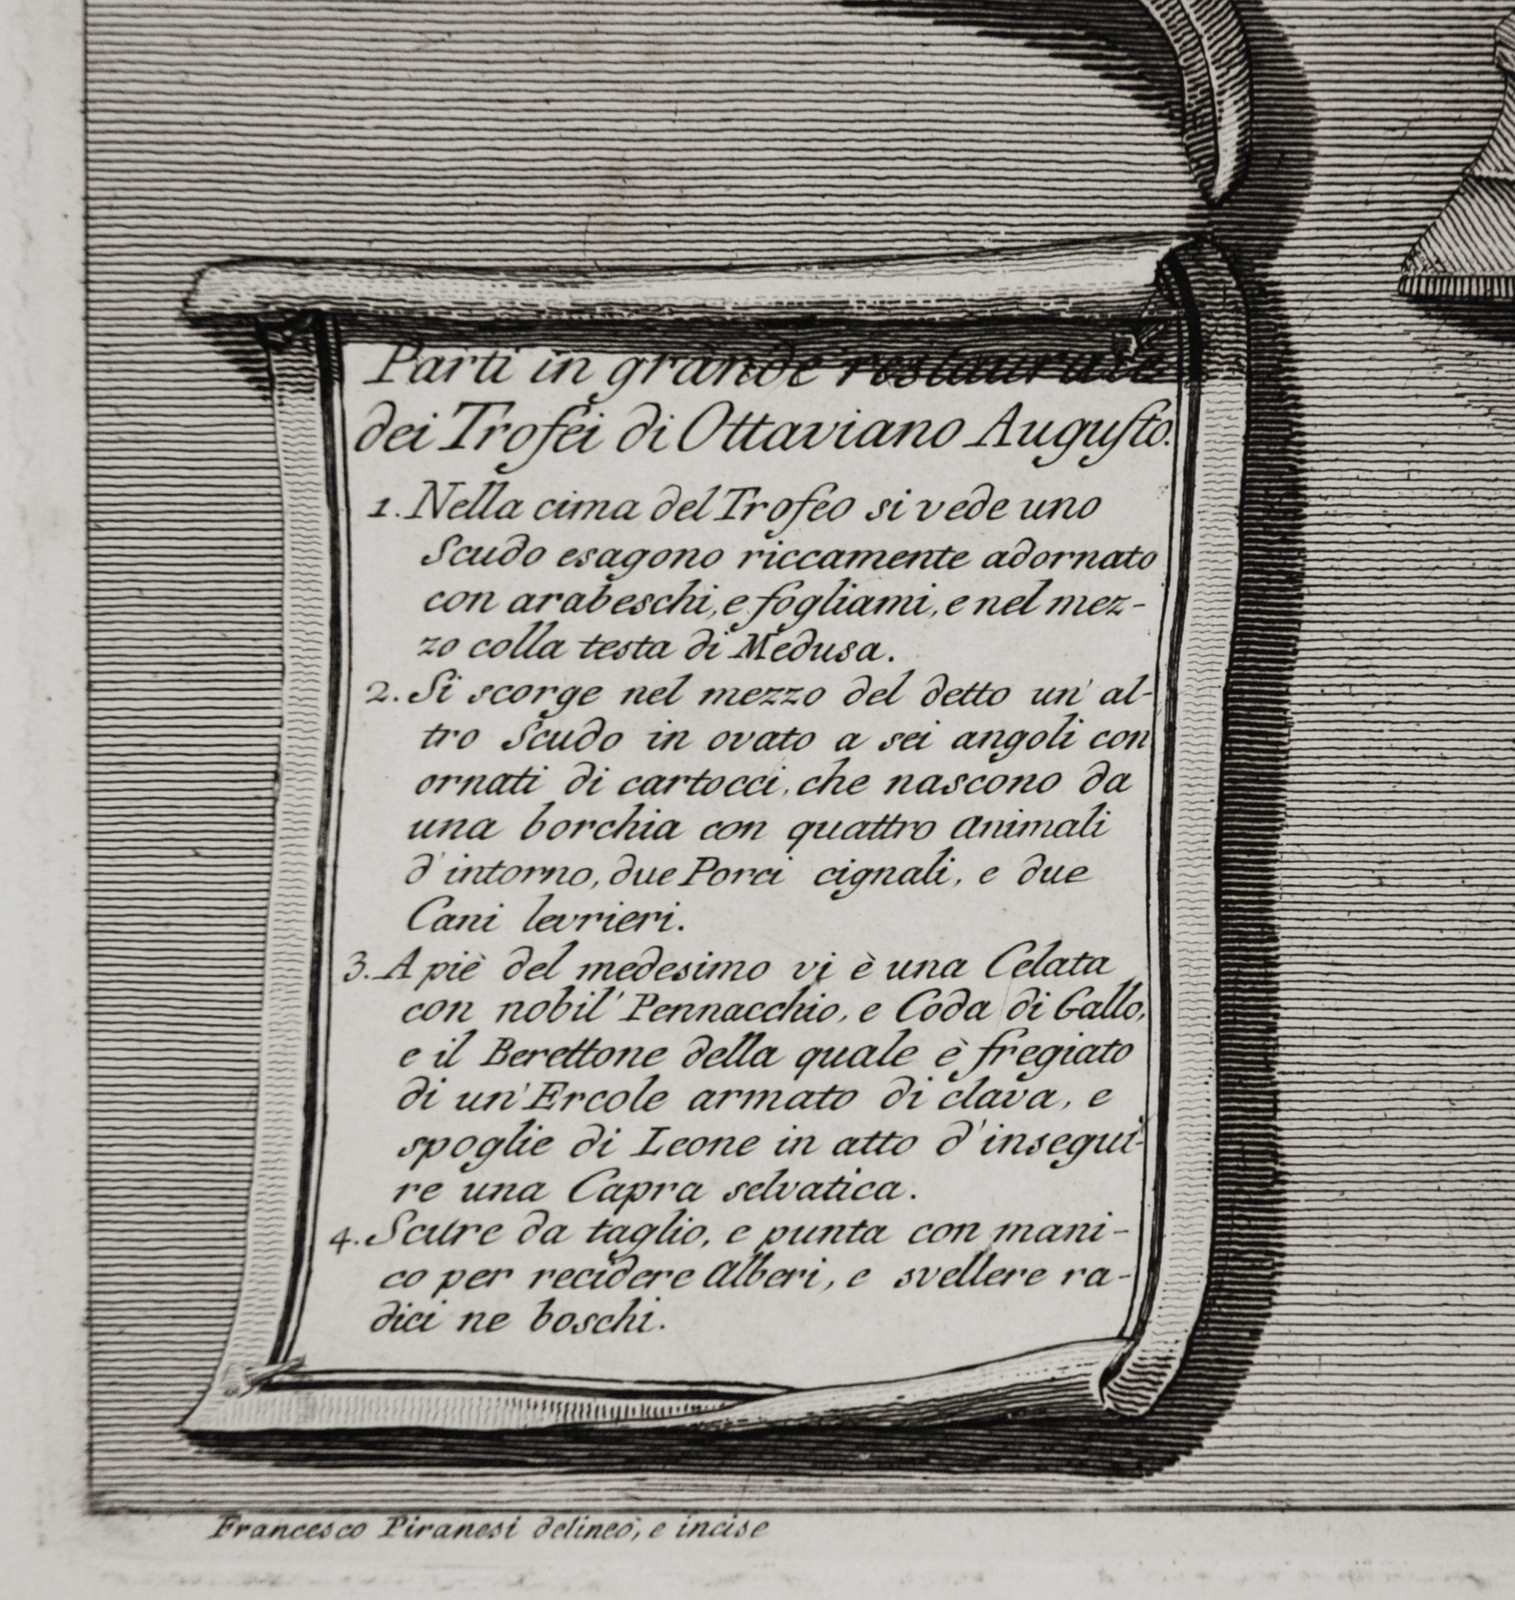 Parti in grande restaurate
dei Trofei di Ottaviano Augusto.
1. Nella cima del Trofeo si vede uno
Scudo esagono riccamente adornato
con arabeschi, e fogliami, e nel mez-
zo colla testa di Medusa.
2. Si scorge nel mezzo del detto un' al-
tro Scudo in ovato a sei angoli con
ornati di cartocci, che nascono da
una borchia con quattro Animali
d'intorno, due Porci cignali, e due
Cani levrieri.
3. A piè del medesimo vi è una Celata
con nobil' Pennacchio, e Coda di Gallo,
e il Berettone della quale è fregiato
di un' Ercole armato di clava, e
spoglie di Leone in atto d'insegui-
re una Capra selvatica.
4. Scure da taglio, e punta con mani-
co per recidere Alberi, e svellere ra-
dici ne boschi.
Francesco Piranesi delineò, e incise